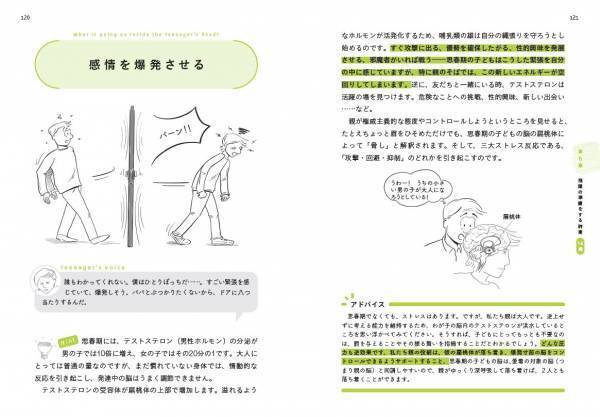 120
What is going on inside the teenager's head?
感情を爆発させる
バーン!!
Teenager's voice
誰もわかってくれない。僕はひとりぼっちだ……。すごい緊張を感
じていて、爆発しそう。パパとぶつかりたくないから、ドアに八つ
当たりするんだ。
Hint 思春期には、テストステロン（男性ホルモン）の分泌が
男の子では10倍に増え、女の子ではその20分の1です。大人に
とっては普通の量なのですが、まだ慣れていない身体では、情動的な
反応を引き起こし、発達中の脳はうまく調節できません。
テストステロンの受容体が扁桃体の上部で増加します。溢れるよう
121
なホルモンが活発化するため、哺乳類の雄は自分の縄張りを守ろうとし
始めるのです。すぐ攻撃に出る、優勢を確保したがる、性的興味を発展
させる、邪魔者がいれば戦う——思春期の子どもはこうした緊張を自分
の中に感じていますが、特に親のそばでは、この新しいエネルギーが空
回りしてしまいます。逆に、友だちと一緒にいる時、テストステロンは
活躍の場を見つけます。危険なことへの挑戦、性的興味、新しい出会い
……など。
親が権威主義的な態度やコントロールしようというところを見せると、
たとえちょっと眉をひそめただけでも、思春期の子どもの脳の扁桃体に
よって「脅し」と解釈されます。そして、三大ストレス反応である、
「攻撃・回避・抑制」のどれかを引き起こすのです。
うわー! うちの小さ
い男の子が大人にな
ろうとしている!
扁桃体
アドバイス
思春期でなくても、ストレスはあります。ですが、私たち親は大人です。逆上せ
ずに考える能力を維持するため、わが子の脳内のテストステロンが洪水しているとこ
ろを思い浮かべてみてください。そうすれば、子どもにとってもっとも不要なの
は、罰を与えることやその振る舞いを指摘することだとわかるでしょう。どんな圧
力も逆効果です。私たち親の役割は、彼の扁桃体が落ち着き、爆発寸前の脳をコン
トロールできるようサポートすること。思春期の子どもの脳は、愛着の対象の脳（つ
まり親の脳）と同調しやすいので、親がゆっくり深呼吸して落ち着けば、2人とも
落ち着くことができます。